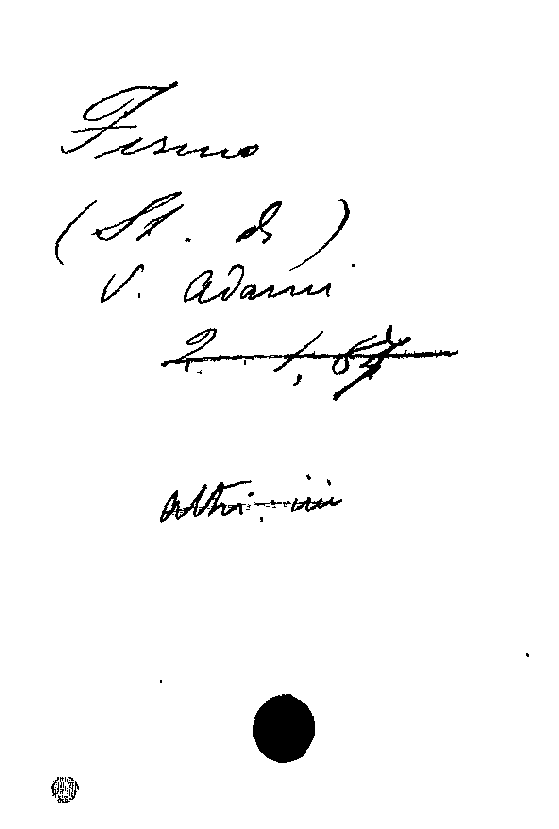 Fermo
(St. di)
V. Adami
2. 1, 87
altri: iii